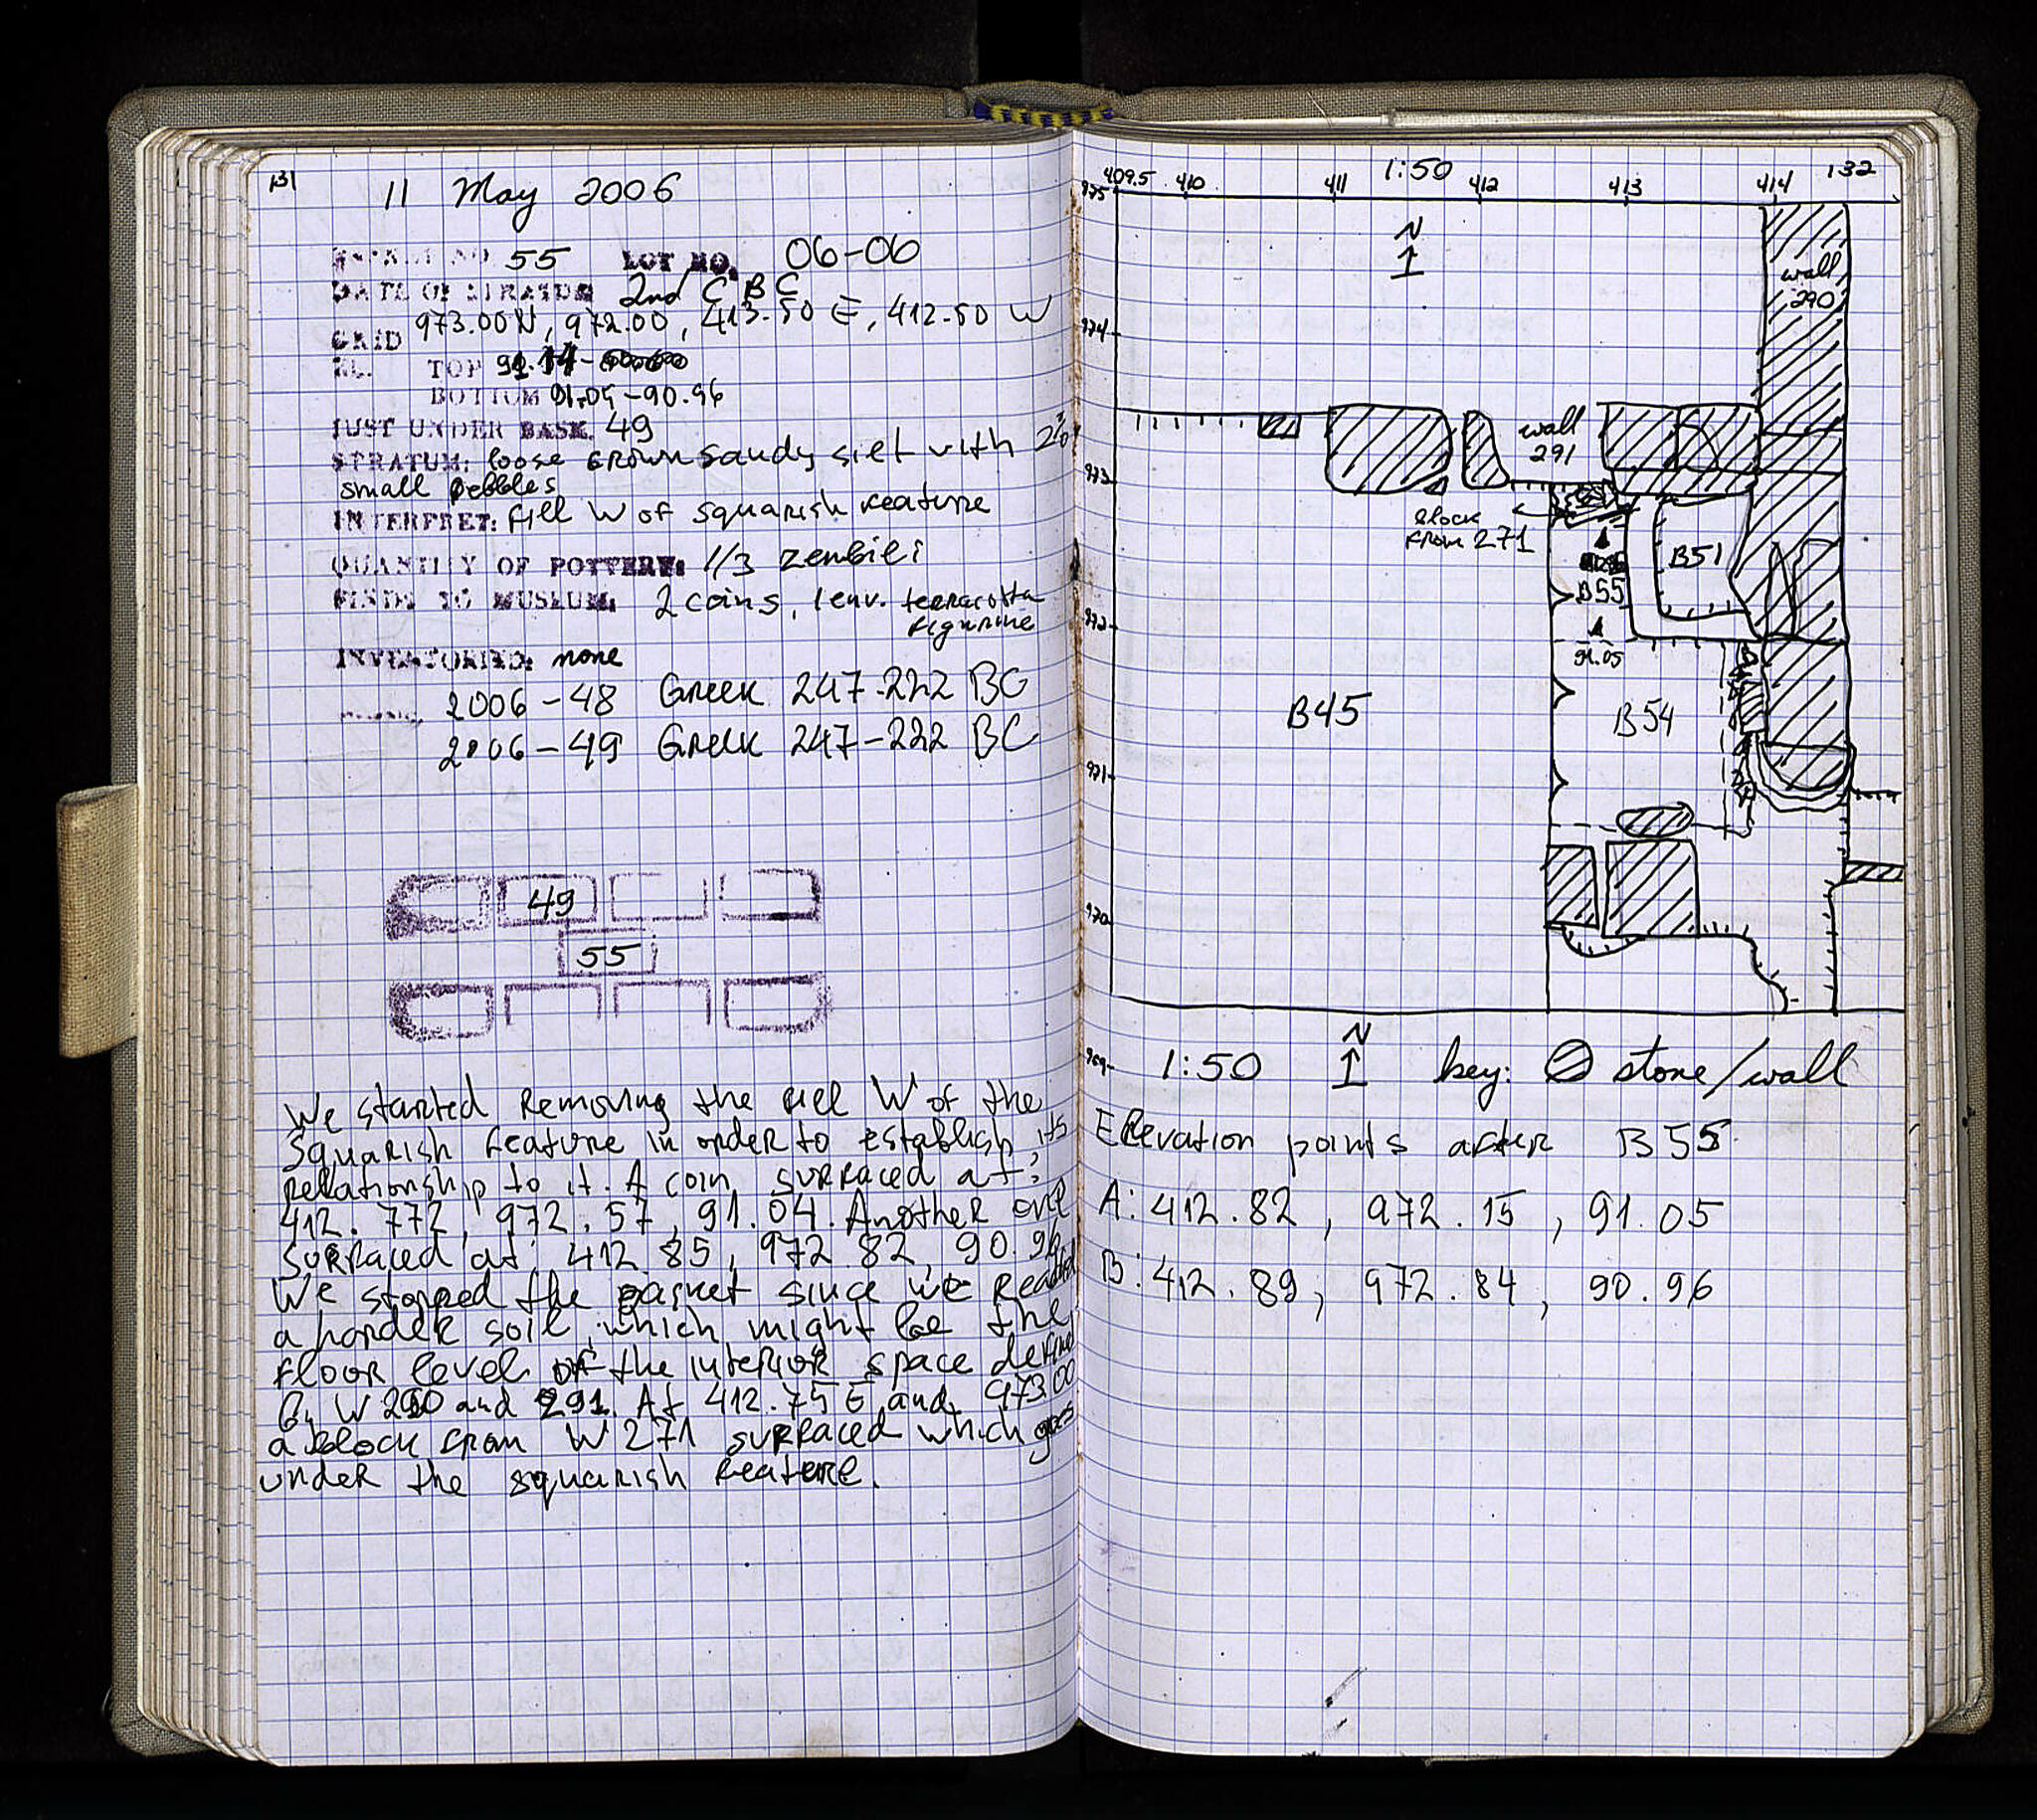 131
11 May 2006
BASKET NO. 55 LOT NO. 06-06
DATE OF STRATUM 2nd C BC
GRID 973.00N, 972.00, 413.50 E, 412.50 W
EL. TOP 91.14-
BOTTOM 91.05-90.96
JUST UNDER BASK. 49
STRATUM: loose brown sandy silt with 2%
small pebbles
INTERPRET: fill W of squarish feature
QUANTITY OF POTTERY: 1/3 zembili
FINDS TO MUSEUM: 2 coins, 1 env. terracotta
figurine
INVENTORIED: none
2006-48 Greek 247-222 BC
2006-49 Greek 247-222 BC
49
55
We started removing the fill W of the
squarish feature in order to establish its
relationship to it. A coin surfaced at:
412.772, 972.57, 91.04. Another one
surfaced at: 412.85, 972.82, 90.96
We stopped the basket since we reached
a harder soil, which might be the
floor level of the interior space defined
by W 290 and 291. At 412.75 E and 973.00
a block from W 271 surfaced which goes
under the squarish feature.
132
1:50
409.5 410 411 412 413 414
975
N
wall
290
974
wall
291
973
block
from 271
B51
B55
972
91.05
B45
B54
971
970
969
1:50 N key: stone/wall
Elevation points after B55
A: 412.82, 972.15, 91.05
B: 412.89, 972.84, 90.96